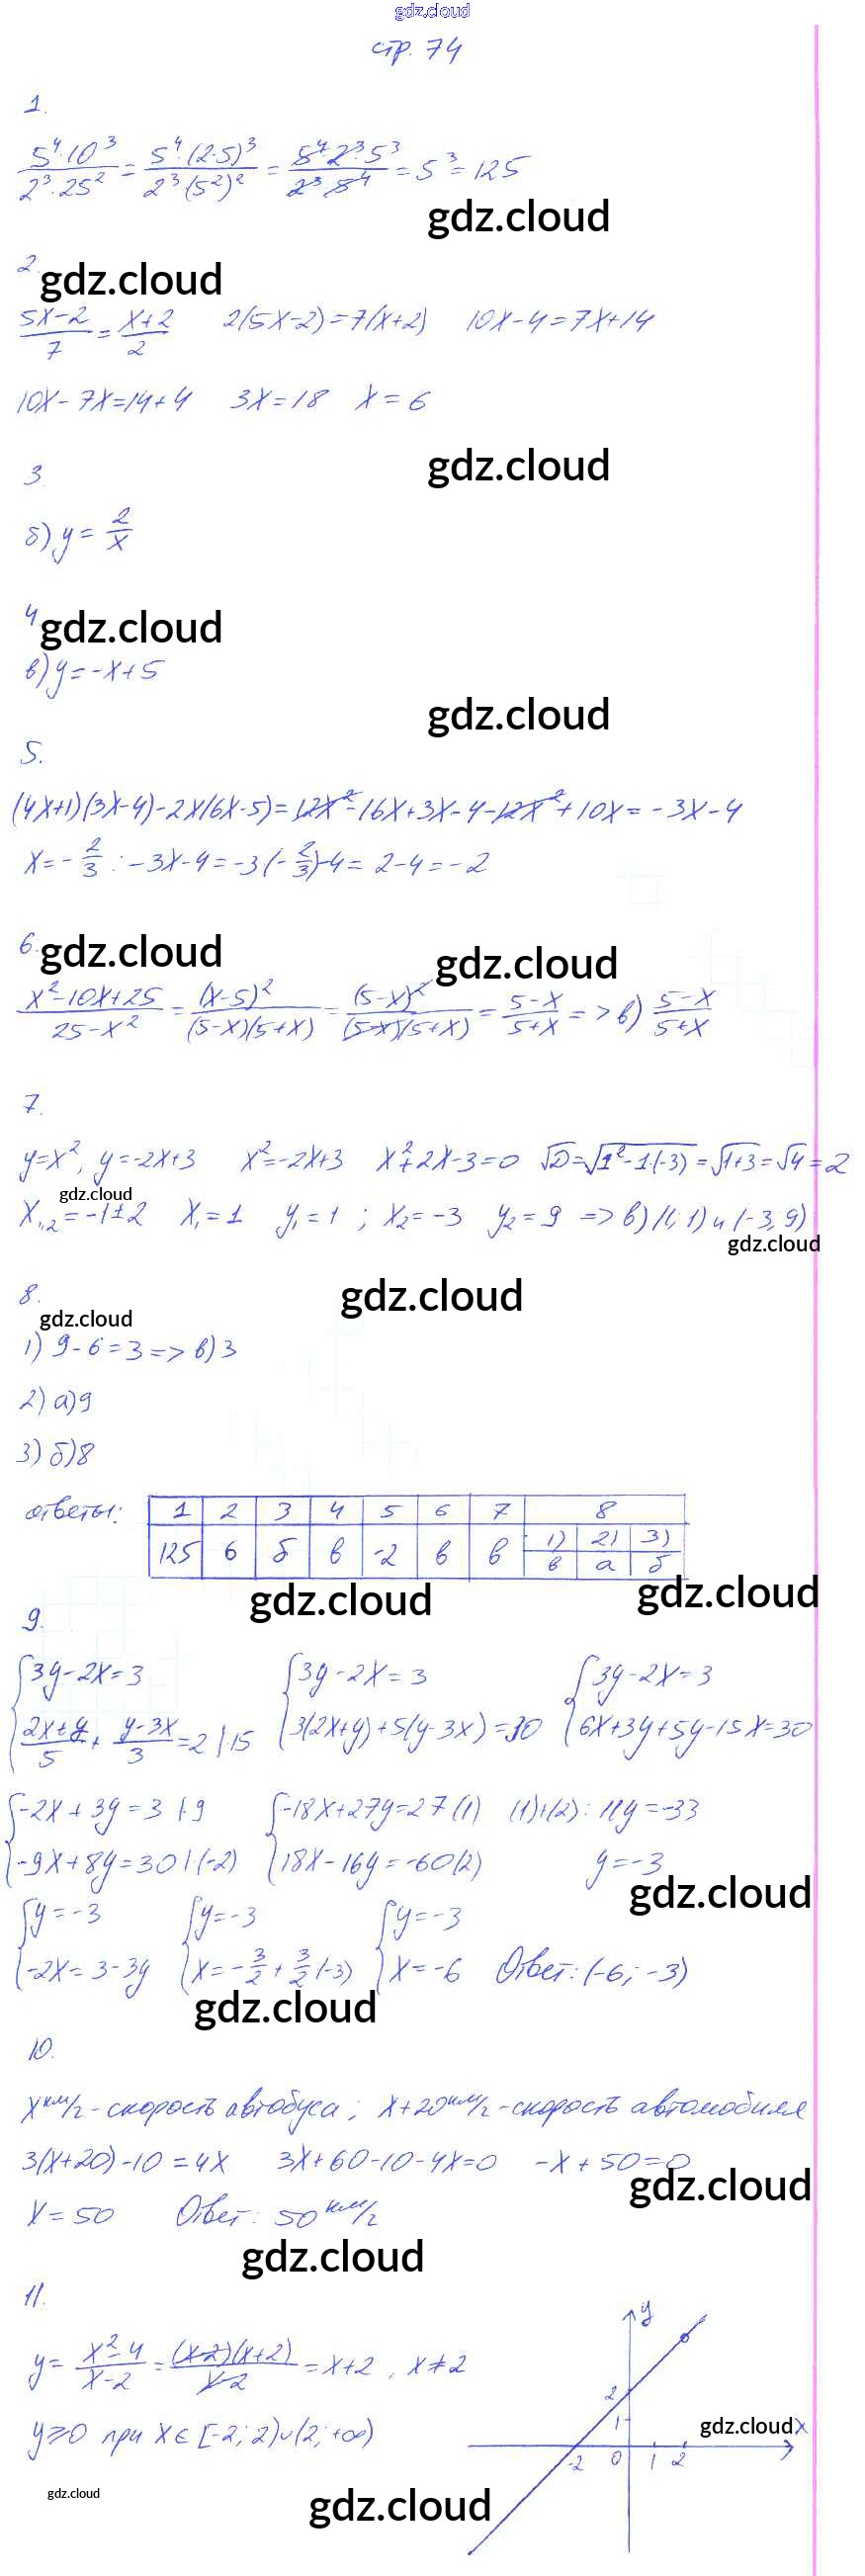 gdz.cloud
стр. 74
1.
5⁴·10³/2³·25² = 5⁴·(2·5)³/2³(5²)² = 5⁴·2³·5³/2³·5⁴ = 5³ = 125
gdz.cloud
2.
gdz.cloud
5x-2/7 = x+2/2 2(5x-2)=7(x+2) 10x-4=7x+14
10x-7x=14+4 3x=18 x=6
3
gdz.cloud
б) y = 2/x
4.
gdz.cloud
в) y=-x+5
gdz.cloud
5.
(4x+1)(3x-4)-2x(6x-5)=12x²-16x+3x-4-12x²+10x=-3x-4
x=-2/3 : -3x-4=-3(-2/3)-4=2-4=-2
6.
gdz.cloud gdz.cloud
x²-10x+25/25-x² = (x-5)²/(5-x)(5+x) = (5-x)²/(5-x)(5+x) = 5-x/5+x => в) 5-x/5+x
7.
y=x², y=-2x+3 x²=-2x+3 x²+2x-3=0 √D=√1²-1·(-3)=√1+3=√4=2
gdz.cloud
x₁,₂=-1±2 x₁=1 y₁=1 ; x₂=-3 y₂=9 => в) (1;1) и (-3;9)
gdz.cloud
8.
gdz.cloud
gdz.cloud
1) 9-6=3 => в) 3
2) а) 9
3) б) 8
ответы: 1 2 3 4 5 6 7 8
125 6 б в -2 в в 1) 2) 3)
в а б
gdz.cloud gdz.cloud
9.
{3y-2x=3 {3y-2x=3 {3y-2x=3
2x+y/5 + y-3x/3 =2 |·15 3(2x+y)+5(y-3x)=30 6x+3y+5y-15x=30
{-2x+3y=3 |·9 {-18x+27y=27 (1) (1)+(2): 11y=-33
-9x+8y=30 |·(-2) 18x-16y=-60 (2) y=-3
gdz.cloud
{y=-3 {y=-3 {y=-3
-2x=3-3y x=-3/2+3/2(-3) x=-6 Ответ: (-6; -3)
gdz.cloud
10.
x км/г - скорость автобуса; x+20 км/г - скорость автомобиля
3(x+20)-10=4x 3x+60-10-4x=0 -x+50=0
gdz.cloud
x=50 Ответ: 50 км/г
gdz.cloud
11.
y= x²-4/x-2 = (x-2)(x+2)/x-2 = x+2, x≠2
y≥0 при x∈[-2;2)∪(2;+∞)
y
2
1
gdz.cloud x
-2 0 1 2
gdz.cloud
gdz.cloud